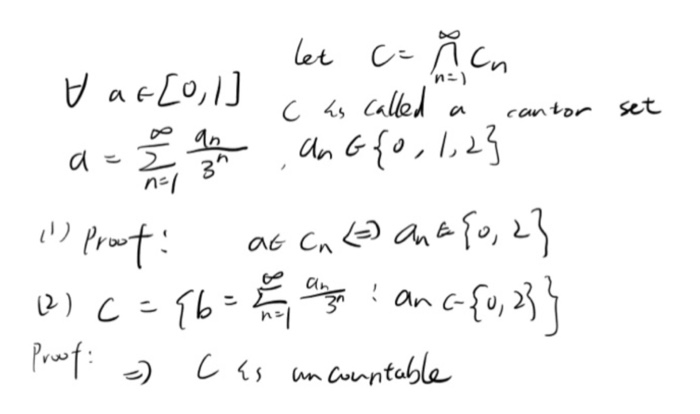 let C = ⋂_{n=1}^{∞} C_n
∀ a ∈ [0,1]
C is called a cantor set
a = ∑_{n=1}^{∞} a_n/3^n , a_n ∈ {0, 1, 2}
(1) Proof: a ∈ C_n ⟺ a_n ∈ {0, 2}
(2) C = {b = ∑_{n=1}^{∞} a_n/3^n : a_n ∈ {0, 2}}
Proof: ⇒ C is uncountable